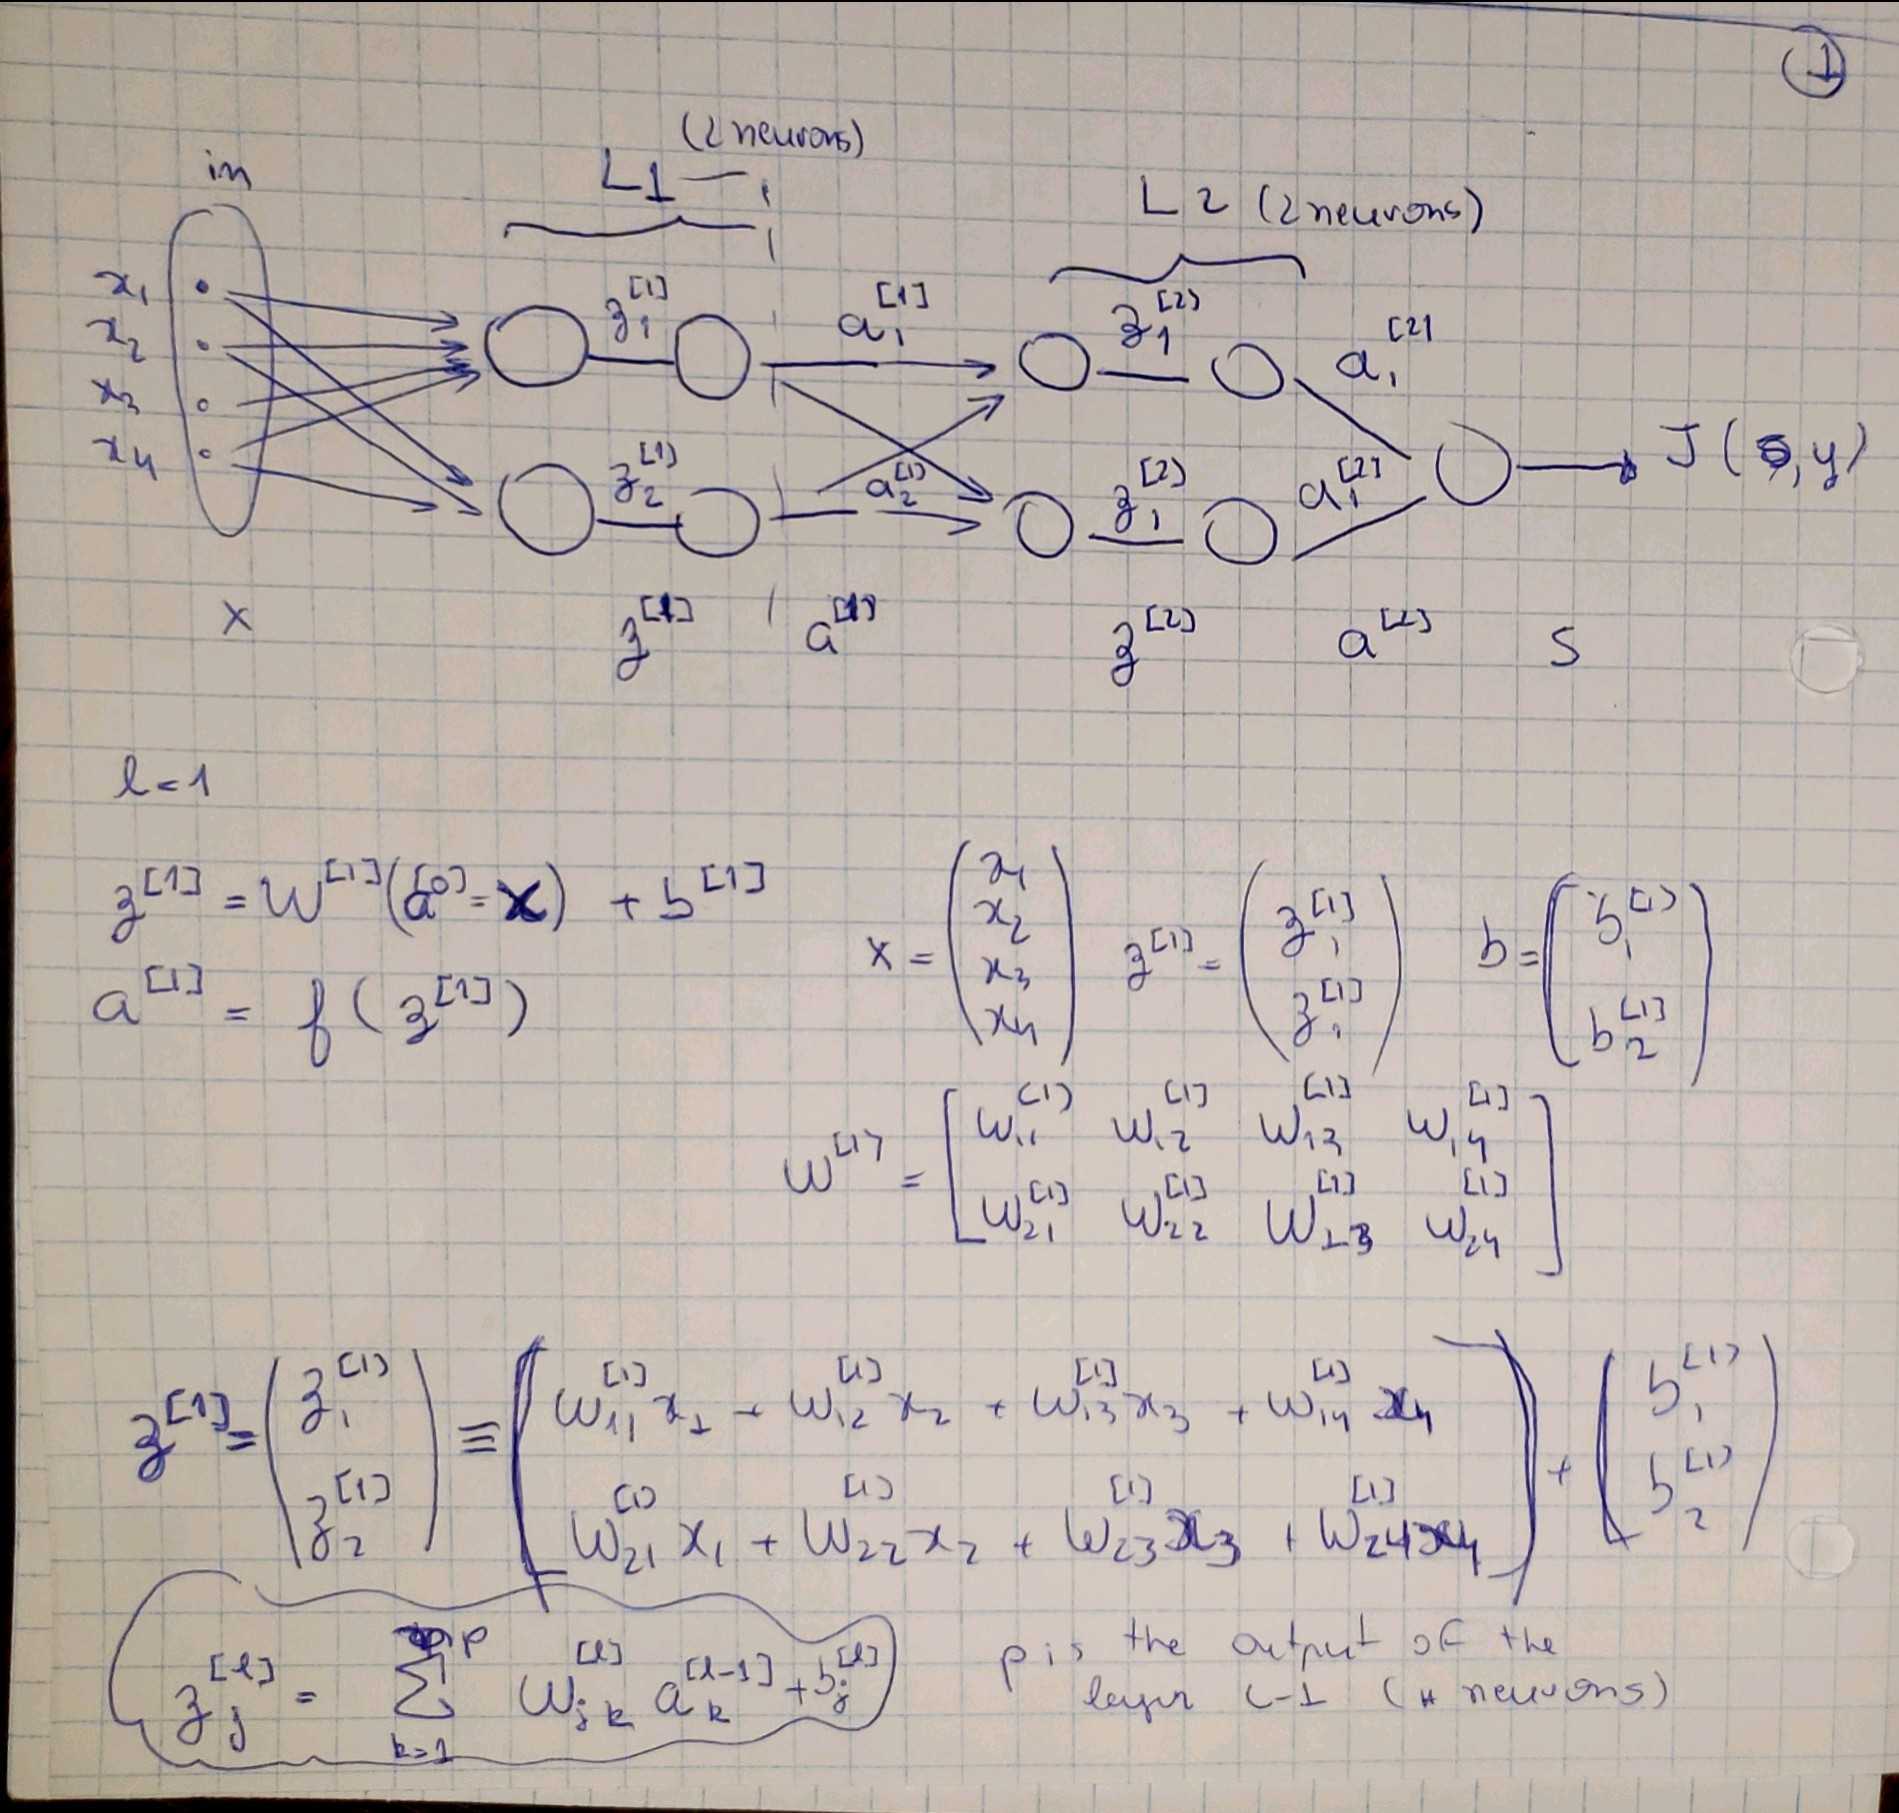 1
(2 neurons)
in L1
L2 (2 neurons)
x₁ z₁^[1] a₁^[1] z₁^[2] a₁^[2]
x₂
x₃
x₄ z₂^[1] a₂^[1] z₁^[2] a₁^[2] J(s,y)
x z^[1] a^[1] z^[2] a^[2] s
l=1
z^[1] = W^[1](a^[0]=x) + b^[1]
a^[1] = f(z^[1])
x = (x₁ x₂ x₃ x₄) z^[1] = (z₁^[1] z₁^[1]) b = (b₁^[1] b₂^[1])
W^[1] = [w₁₁^[1] w₁₂^[1] w₁₃^[1] w₁₄^[1]
w₂₁^[1] w₂₂^[1] w₂₃^[1] w₂₄^[1]]
z^[1] = (z₁^[1] z₂^[1]) ≡ (w₁₁^[1] x₁ + w₁₂^[1] x₂ + w₁₃^[1] x₃ + w₁₄^[1] x₄
w₂₁^[1] x₁ + w₂₂^[1] x₂ + w₂₃^[1] x₃ + w₂₄^[1] x₄) + (b₁^[1] b₂^[1])
z_j^[l] = Σ_{k=1}^{p} w_jk^[l] a_k^[l-1] + b_j^[l]
p is the output of the
layer L-1 (# neurons)